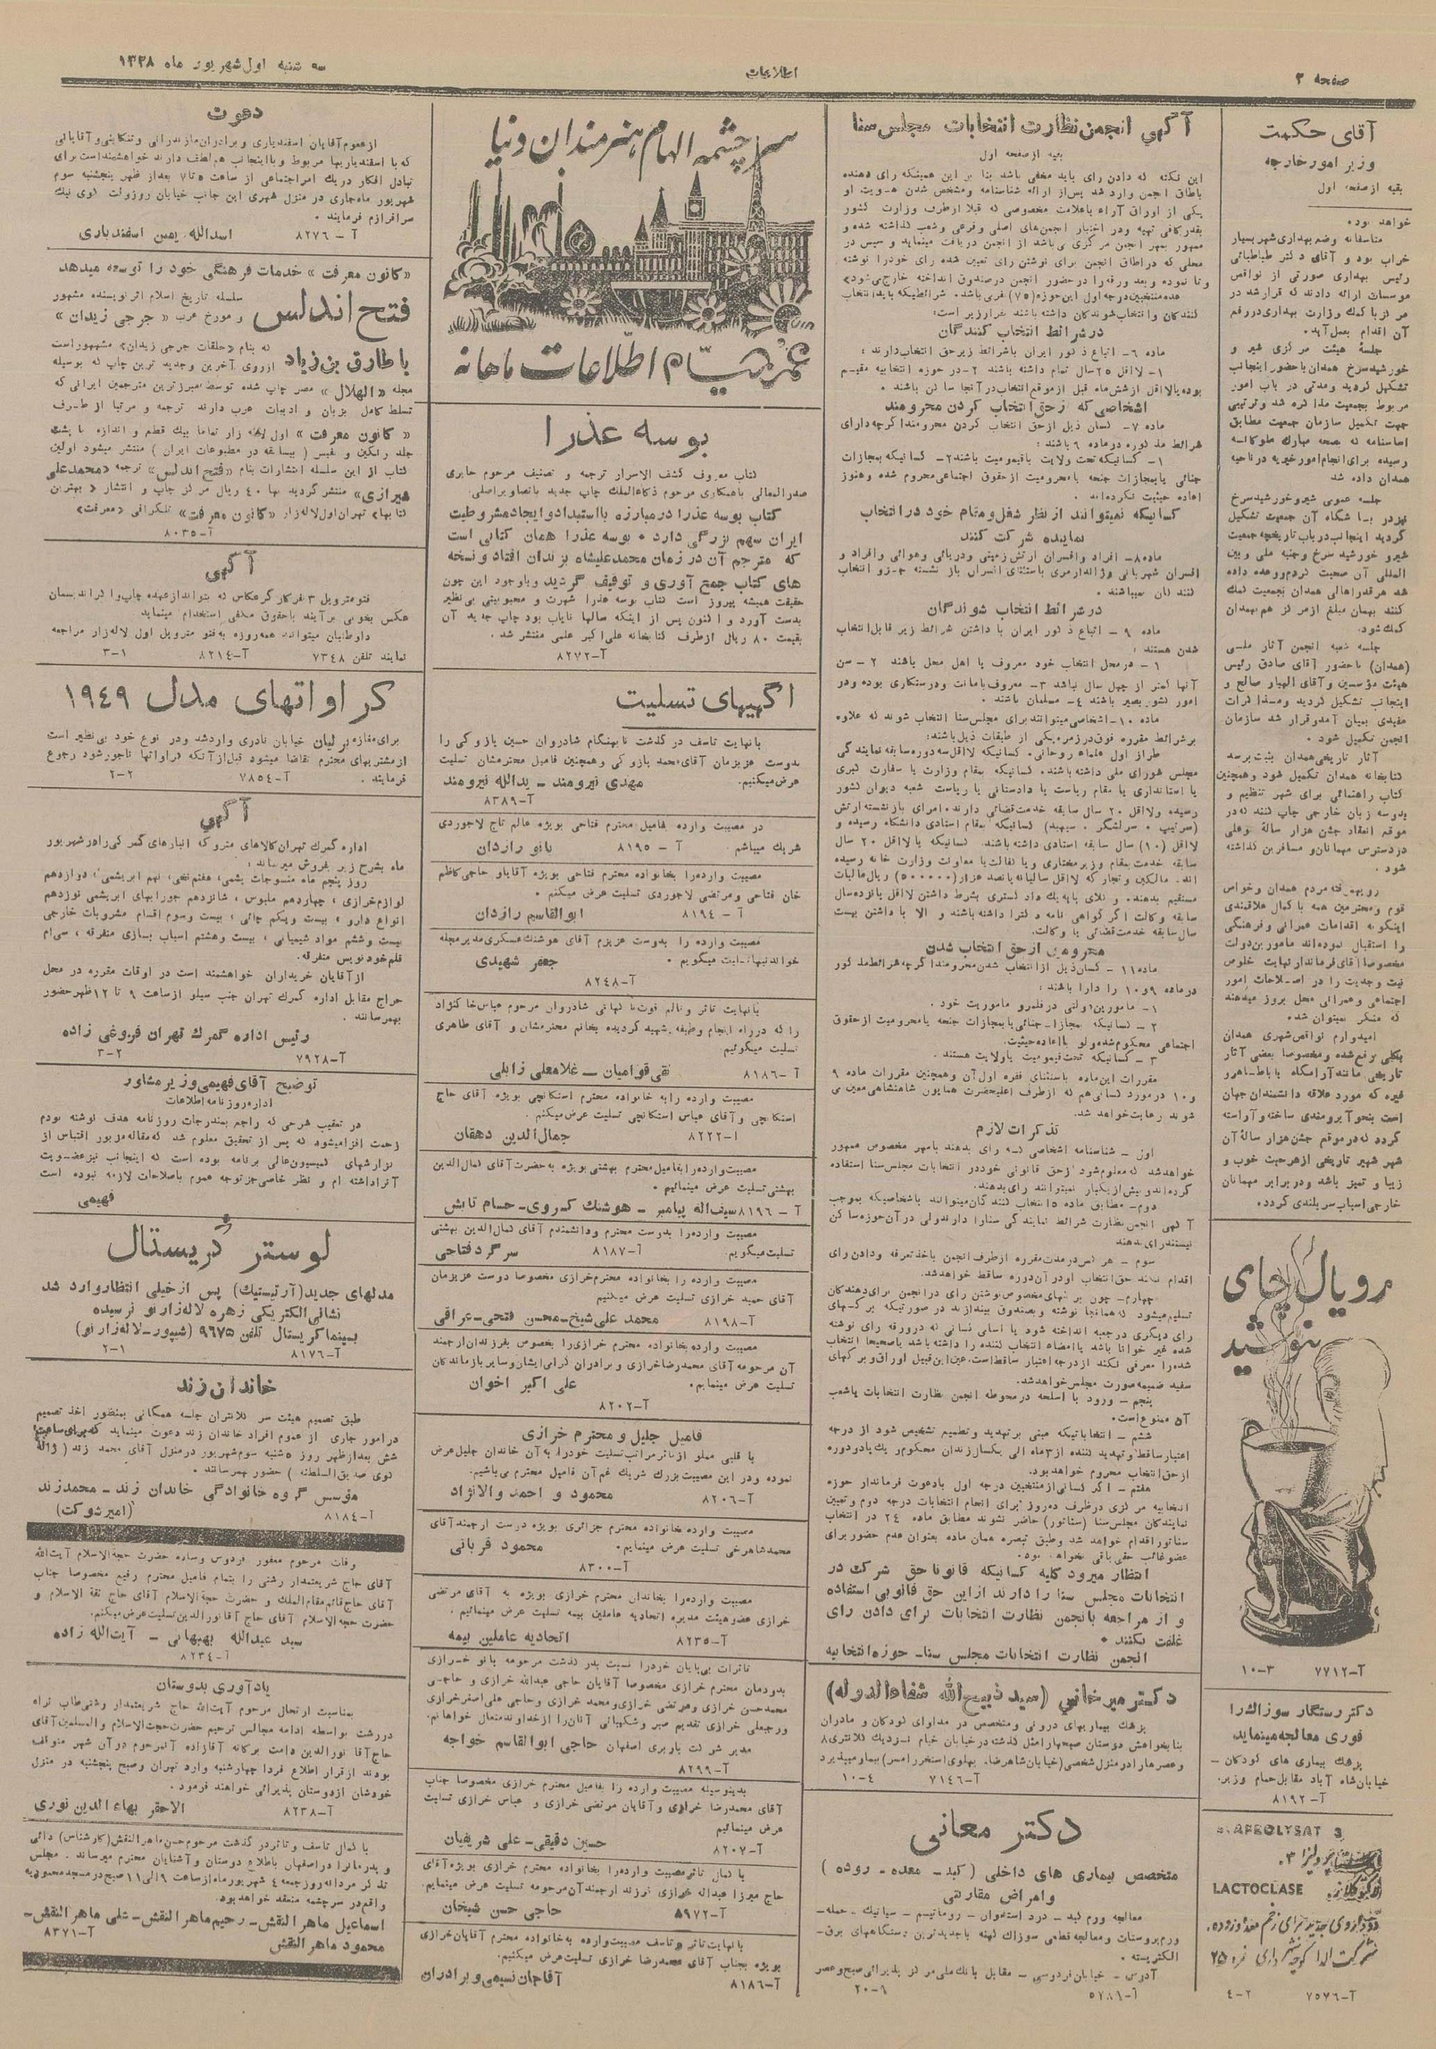 صفحه ۲
اطلاعات
سه شنبه اول شهریور ماه ۱۳۲۸
آقای حکمت
وزیر امور خارجه
بقیه از صفحه اول
خواهد بود
متاسفانه وضع بهداری شهر بسیار
خراب بود و آقای دکتر طباطبائی
رئیس بهداری صورتی از نواقص
موسسات ارائه دادند که قرار شد در
مرکز با کمک وزارت بهداری در رفع
آن اقدام بعمل آید.
جلسهٔ هیئت مرکزی شیر و
خورشید سرخ همدان با حضور اینجانب
تشکیل گردید و مدتی در باب امور
مربوط بجمعیت مذاکره شد و ترتیبی
جهت تکمیل سازمان جمعیت مطابق
اساسنامه که بصحه مبارک ملوکانه
رسیده برای انجام امور خیریه در ناحیه
همدان داده شد
جلسه عمومی شیر و خورشید سرخ
نیز در باشگاه آن جمعیت تشکیل
گردید اینجانب در باب تاریخچه جمعیت
شیر و خورشید سرخ و جنبه ملی و بین
المللی آن صحبت کردم و وعده داده
شد هر قدر اهالی همدان بجمعیت کمک
کنند بهمان مبلغ از مرکز هم بهمدان
کمک شود.
جلسه شعبه انجمن آثار ملی
(همدان) با حضور آقای صادق رئیس
هیئت مؤسسین و آقای الهیار صالح و
اینجانب تشکیل گردید و مذاکرات
مفیدی بمیان آمد و قرار شد سازمان
انجمن تکمیل شود.
آثار تاریخی همدان بثبت برسد
کتابخانه همدان تکمیل شود و همچنین
کتاب راهنمائی برای شهر تنظیم و
بدو سه زبان خارجی چاپ کنند که در
موقع انعقاد جشن هزار سالهٔ بوعلی
در دسترس مهمانان و مسافرین گذاشته
شود.
رویهمرفته مردم همدان و خواص
قوم و محترمین همه با کمال علاقمندی
اینگونه اقدامات عمرانی و فرهنگی
را استقبال نموده‌اند مامورین دولت
مخصوصا آقای فرماندار نهایت خلوص
نیت و جدیت را در اصلاحات امور
اجتماعی و عمرانی محل بروز میدهند
که متشکر نمیتوان شد.
امیدوارم نواقص شهری همدان
بکلی برفع شده و مخصوصا بعضی آثار
تاریخی مانند آرامگاه باباطاهر و
غیره که مورد علاقه دانشمندان جهان
است بنحو آبرومندی ساخته و آراسته
گردد که در موقع جشن هزار سالهٔ آن
شهر شهیر تاریخی از هر حیث خوب و
زیبا و تمیز باشد و در برابر مهمانان
خارجی اسباب سربلندی گردد.
رویال چای
بنوشید
آ-۷۷۱۲ ۳-۱۰
دکتر رستگار سوزاک را
فوری معالجه مینماید.
پزشک بیماری های کودکان -
خیابان شاه آباد مقابل حمام وزیر.
آ-۸۱۹۲
LACTOCLASE
آ-۷۵۷۶ ۲-۴
آگهی انجمن نظارت انتخابات مجلس سنا
بقیه از صفحه اول
این نکته که دادن رای باید مخفی باشد بنا بر این همینکه رای دهنده
باطاق انجمن وارد شد پس از ارائه شناسنامه و مشخص شدن هویت او
یکی از اوراق آراء با علامت مخصوصی که قبلا از طرف وزارت کشور
بقدر کافی تهیه و در اختیار انجمن‌های اصلی و فرعی و شعب گذاشته شده و
ممهور بمهر انجمن مرکزی می‌باشد از انجمن دریافت مینماید و سپس در
محلی که در اطاق انجمن برای نوشتن رای تعیین شده رای خود را نوشته
و تا نموده و بعد ورقه را در حضور انجمن در صندوق انداخته خارج می‌شود»
عده منتخبین درجه اول این حوزه (۷۵) نفر می‌باشد. شرائطی که باید انتخاب
کنندگان و انتخاب شوندگان داشته باشند بقرار زیر است:
در شرائط انتخاب کنندگان
ماده ۶- اتباع ذکور ایران با شرائط زیر حق انتخاب دارند:
۱- لااقل ۲۵ سال تمام داشته باشند ۲- در حوزه انتخابیه مقیم
بوده یا لااقل از شش ماه قبل از موقع انتخاب در آنجا ساکن باشند.
اشخاصی که از حق انتخاب کردن محرومند
ماده ۷- کسان ذیل از حق انتخاب کردن محرومند اگرچه دارای
شرائط مذکوره در ماده ۶ باشند:
۱- کسانیکه تحت ولایت یا قیمومیت باشند ۲- کسانیکه بمجازات
جنائی یا بمجازات جنحه با محرومیت از حقوق اجتماعی محروم شده و هنوز
اعاده حیثیت نکرده‌اند.
کسانیکه نمیتوانند از نظر شغل و مقام خود در انتخاب
نماینده شرکت کنند
ماده ۸- افراد و افسران ارتش زمینی و دریائی و هوائی و افراد و
افسران شهربانی و ژاندارمری باستثنای افسران باز نشسته جزو انتخاب
کنندگان نمیباشند.
در شرائط انتخاب شوندگان
ماده ۹- اتباع ذکور ایران با داشتن شرائط زیر قابل انتخاب
شدن هستند:
۱- در محل انتخاب خود معروف یا اهل محل باشند ۲- سن
آنها کمتر از چهل سال نباشد ۳- معروف بامانت و درستکاری بوده و در
امور کشور بصیر باشند ۴- مسلمان باشند.
ماده ۱۰- اشخاصی میتوانند برای مجلس سنا انتخاب شوند که علاوه
بر شرائط مقرره فوق در زمره یکی از طبقات ذیل باشند:
طراز اول علماء روحانی. کسانیکه لااقل سه دوره سابقه نمایندگی
مجلس شورای ملی داشته باشند. کسانیکه بمقام وزارت یا سفارت کبری
یا استانداری یا مقام ریاست یا دادستانی یا ریاست شعبه دیوان کشور
رسیده و لااقل ۲۰ سال سابقه خدمت قضائی دارند. امرای بازنشسته ارتش
(سرتیپ - سرلشگر - سپهبد) کسانیکه بمقام استادی دانشگاه رسیده و
لااقل (۱۰) سال سابقه استادی داشته باشند. کسانیکه با لااقل ۲۰ سال
سابقه خدمت بمقام وزیر مختاری و یا کفالت یا معاونت وزارت خانه رسیده
اند. مالکین و تجار که لااقل سالیانه پانصد هزار (۵۰۰۰۰۰) ریال مالیات
مستقیم بدهند. وکلای پایه یک دادگستری بشرط داشتن لااقل پانزده سال
سابقه وکالت اگر گواهی نامه دکترا داشته باشند و الا با داشتن بیست
سال سابقه خدمت قضائی یا وکالت.
محرومین از حق انتخاب شدن
ماده ۱۱- کسان ذیل از انتخاب شدن محرومند اگرچه شرائط مذکور
در ماده ۹ و ۱۰ را دارا باشند:
۱- مامورین دولتی در قلمرو ماموریت خود.
۲- کسانیکه بمجازات جنائی یا بمجازات جنحه با محرومیت از حقوق
اجتماعی محکوم شده ولو با اعاده حیثیت.
۳- کسانیکه تحت قیمومیت یا ولایت هستند.
مقررات این ماده باستثنای فقره اول آن و همچنین مقررات ماده ۹
و ۱۰ در مورد کسانی هم که از طرف اعلیحضرت همایون شاهنشاهی معین می
شوند رعایت خواهد شد.
تذکرات لازم
اول - شناسنامه اشخاصی که رای بدهند با مهر مخصوص ممهور
خواهد شد که معلوم شود از حق قانونی خود در انتخابات مجلس سنا استفاده
کرده‌اند و بیش از یکبار نمیتوانند رای بدهند.
دوم - مطابق ماده ۵ انتخاب کنندگان میتوانند باشخاصیکه بموجب
آگهی انجمن نظارت شرائط نمایندگی سنا را دارند ولی در آن حوزه ساکن
نیستند رای بدهند
سوم - هر کس در مدت مقرره از طرف انجمن باخذ تعرفه و دادن رای
اقدام نکند حق انتخاب او در آن دوره ساقط خواهد شد.
چهارم - چون برگهای مخصوص نوشتن رای در انجمن برای دهندگان
تسلیم میشود که همانجا نوشته و بصندوق بیندازند در صورتیکه برگهای
رای دیگری در جعبه انداخته شود یا اسامی کسانی که در ورقه رای نوشته
شده غیر خوانا باشد یا امضاء انتخاب کننده را داشته باشد یا صحیحا انتخاب
شده را معرفی نکند از درجه اعتبار ساقط است. عین این قبیل اوراق و برگهای
سفید ضمیمه صورت مجلس خواهد شد.
پنجم - ورود با اسلحه در محوطه انجمن نظارت انتخابات یا شعب
آن ممنوع است.
ششم - انتخاباتیکه مبنی بر تهدید و تطمیع تشخیص شود از درجه
اعتبار ساقط و تهدید کننده از ۳ ماه الی یکسال زندان محکوم و یک یا دو دوره
از حق انتخاب محروم خواهد بود.
هفتم - اگر کسانی از منتخبین درجه اول با دعوت فرماندار حوزه
انتخابیه مرکزی در ظرف ده روز برای انجام انتخابات درجه دوم و تعیین
نمایندگان مجلس سنا (سناتور) حاضر نشوند مطابق ماده ۲۴ در انتخاب
سناتور اقدام خواهد شد و طبق تبصره همان ماده بعنوان عدم حضور برای
عضو غائب حقی باقی نخواهد بود.
انتظار میرود کلیه کسانیکه قانونا حق شرکت در
انتخابات مجلس سنا را دارند از این حق قانونی استفاده
و از مراجعه بانجمن نظارت انتخابات برای دادن رای
غفلت نکنند.
انجمن نظارت انتخابات مجلس سنا- حوزه انتخابیه
دکتر میرخانی (سید ذبیح‌الله شفاءالدوله)
پزشک بیماریهای درونی و متخصص در مداوای کودکان و مادران
بنا بخواهش دوستان صبحها از مثل گذشته در خیابان خیام نزدیک کلانتری ۸
و عصرها در منزل شخصی (خیابان شاهرضا. پهلوی استخر رامسر) بیمار میپذیرد
آ-۷۱۴۶ ۴-۱۰
دکتر معانی
متخصص بیماری های داخلی (کبد - معده - روده)
و امراض مقاربتی
معالجه ورم کبد - درد استخوان - روماتیسم - سیاتیک - حمله-
ورم پروستات و معالجه قطعی سوزاک کهنه با جدیدترین دستگاههای برق-
الکتریسته.
آدرس - خیابان فردوسی - مقابل بانک ملی مرکز پذیرائی صبح و عصر
آ-۵۷۸۱ ۹-۲۰
سرچشمه الهام هنرمندان دنیا
اطلاعات ماهانه
بوسه عذرا
کتاب معروف کشف الاسرار ترجمه و تصنیف مرحوم حایری
صدرالمعالی با همکاری مرحوم ذکاءالملک چاپ جدید با تصاویر اصلی.
کتاب بوسه عذرا در مبارزه با استبداد و ایجاد مشروطیت
ایران سهم بزرگی دارد. بوسه عذرا همان کتابی است
که مترجم آن در زمان محمدعلیشاه بزندان افتاد و نسخه
های کتاب جمع آوری و توقیف گردید و با وجود این چون
حقیقت همیشه پیروز است کتاب بوسه عذرا شهرت و محبوبیتی بی‌نظیر
بدست آورد و اکنون پس از اینکه سالها نایاب بود چاپ جدید آن
بقیمت ۸۰ ریال از طرف کتابخانه علی‌اکبر علمی منتشر شد.
آ-۸۲۷۲
آگهیهای تسلیت
با نهایت تاسف در گذشت نابهنگام شادروان حسین بازوکی را
بدوست عزیزمان آقای محمد بازوکی و همچنین فامیل محترمشان تسلیت
عرض میکنیم. مهدی نیرومند - یدالله نیرومند
آ-۸۳۸۹
در مصیبت وارده بفامیل محترم فتاحی بویژه عالم تاج لاجوردی
شریک میباشم. آ - ۸۱۹۵ بانو رازدان
مصیبت وارده را بخانواده محترم فتاحی بویژه آقایان حاجی کاظم
خان فتاحی و مرتضی لاجوردی تسلیت عرض میکنم.
آ - ۸۱۹۴ ابوالقاسم رازدان
مصیبت وارده را بدوست عزیزم آقای هوشنگ عسکری مدیر مجله
خواندنیها تسلیت میگویم. جعفر شهیدی
آ-۸۲۴۸
با نهایت تاثر و تالم فوت ناگهانی شادروان مرحوم عباس خاکنژاد
را که در راه انجام وظیفه شهید گردیده بخانم محترمشان و آقای طاهری
تسلیت میگوئیم
آ-۸۱۸۶ نقی قوامیان - غلامعلی زابلی
مصیبت وارده را به خانواده محترم اسکناچی بویژه آقای حاج
اسکناچی و آقای عباس اسکناچی تسلیت عرض میکنم.
آ-۸۲۲۲ جمال‌الدین دهقان
مصیبت وارده را بفامیل محترم بهشتی بویژه به حضرت آقای کمال‌الدین
بهشتی تسلیت عرض مینمائیم.
آ-۸۱۹۶ سیف‌اله پیامبر - هوشنگ کدروی - حسام تابش
مصیبت وارده را بدوست محترم و دانشمندم آقای کمال‌الدین بهشتی
تسلیت میگویم. آ-۸۱۸۷ سرگرد فتاحی
مصیبت وارده را بخانواده محترم خرازی مخصوصا دوست عزیزمان
آقای حمید خرازی تسلیت عرض میکنیم
آ-۸۱۹۸ محمد علی شیخ - محسن فتحی - عراقی
مصیبت وارده بخانواده محترم خرازی را بخصوص بفرزندان ارجمند
آن مرحومه آقای محمدرضا خرازی و برادران گرامی ایشان و سایر بازماندگان
تسلیت عرض مینمایم. علی اکبر اخوان
آ-۸۲۰۲
فامیل جلیل و محترم خرازی
با قلبی مملو از تاثر مراتب تسلیت خود را به آن خاندان جلیل عرض
نموده و در این مصیبت بزرگ شریک غم آن فامیل محترم می‌باشیم.
آ-۸۲۰۶ محمود و احمد والانژاد
مصیبت وارده بخانواده محترم جزائری بویژه دوست ارجمند آقای
محمد شاهرخی تسلیت عرض مینمایم. محمود قربانی
آ-۸۳۰۰
مصیبت وارده را بخاندان محترم خرازی بویژه به آقای مرتضی
خرازی عضو هیئت مدیره اتحادیه عاملین بیمه تسلیت عرض مینمائیم.
آ-۸۲۳۵ اتحادیه عاملین بیمه
تاثرات بی‌پایان خود را نسبت بدر گذشت مرحومه بانو خرازی
بدودمان محترم خرازی مخصوصا آقایان حاجی عبدالله خرازی و حاجی
محمد حسن خرازی و مرتضی خرازی و محمد خرازی و حاجی علی اصغر خرازی
و رجبعلی خرازی تقدیم صبر و شکیبائی آنان را از خداوند متعال خواهانم.
مدیر شرکت باربری اصفهان حاجی ابوالقاسم خواجه
آ-۸۲۹۹
بدینوسیله مصیبت وارده را بفامیل محترم خرازی مخصوصا جناب
آقای محمدرضا خرازی و آقایان مرتضی خرازی و عباس خرازی تسلیت
عرض مینمائیم
آ-۸۲۰۷ حسین دقیقی - علی شریفیان
با کمال تاثر مصیبت وارده را بخانواده محترم خرازی بویژه آقای
حاج میرزا عبداله خرازی فرزند ارجمند آن مرحومه تسلیت عرض مینمایم.
آ-۵۹۷۲ حاجی حسن شیخان
با نهایت تاثر و تاسف مصیبت وارده را به خانواده محترم آقایان خرازی
بویژه بجناب آقای محمدرضا خرازی تسلیت عرض میکنیم.
آ-۸۱۸۶ آقاجان نسیمی و برادران
دعوت
از عموم آقایان اسفندیاری و برادران مازندرانی و تنکابنی و آقایانی
که با اسفندیاریها مربوط و با اینجانب هم لطف دارند خواهشمند است برای
تبادل افکار در یک امر اجتماعی از ساعت ۵ تا ۷ بعد از ظهر پنجشنبه سوم
شهریور ماه جاری در منزل شهری این جانب خیابان روزولت کوی نیک
سرافرازم فرمایند.
آ - ۸۲۷۶ اسدالله یمین اسفندیاری
«کانون معرفت» خدمات فرهنگی خود را توسعه میدهد
فتح اندلس
سلسله تاریخ اسلام اثر نویسنده مشهور
و مورخ عرب «جرجی زیدان»
با طارق بن زیاد
که بنام «حلقات جرجی زیدان» مشهور است
از روی آخرین و جدید ترین چاپ که بوسیله
مجله «الهلال» مصر چاپ شده توسط مبرزترین مترجمین ایرانی که
تسلط کامل بزبان و ادبیات عرب دارند ترجمه و مرتبا از طرف
«کانون معرفت» اول لاله زار تماما بیک قطع و اندازه با پشت
جلد رنگین و نفیس (بیسابقه در مطبوعات ایران) منتشر میشود اولین
کتاب از این سلسله انتشارات بنام «فتح اندلس» ترجمه «محمدعلی
شیرازی» منتشر گردید بها ۴۰ ریال مرکز چاپ و انتشار «بهترین
کتابها» تهران اول لاله‌زار «کانون معرفت» تلگرافی «معرفت»
آ-۸۰۳۵
آگهی
فتو مترو پل ۳ نفر کارگر عکاس که بتواند از عهده چاپ و اگراندیسمان
عکس بخوبی برآیند با حقوق مکفی استخدام مینماید
داوطلبان میتوانند همه روزه به فتو متروپل اول لاله زار مراجعه
نمایند تلفن ۷۳۴۸ آ-۸۲۱۴ ۱-۳
کراواتهای مدل ۱۹۴۹
برای مغازه برلیان خیابان نادری وارد شد و در نوع خود بی‌نظیر است
از مشتریهای محترم تقاضا میشود قبل از آنکه کراواتها تا جور شود رجوع
فرمایند. آ-۷۸۵۴ ۲-۲
آگهی
اداره گمرک تهران کالاهای متروکه انبارهای گمرکی را در شهریور
ماه بشرح زیر بفروش میرساند:
روز پنجم ماه منسوجات پشمی، هفتم نخی، نهم ابریشمی، دوازدهم
لوازم خرازی، چهاردهم ملبوس، شانزدهم جورابهای ابریشمی نوزدهم
انواع دارو، بیست و یکم چائی، بیست و سوم اقسام مشروبات خارجی
بیست و ششم مواد شیمیائی، بیست و هشتم اسباب بازی متفرقه، سی‌ام
قلم خودنویس متفرقه.
از آقایان خریداران خواهشمند است در اوقات مقرره در محل
حراج مقابل اداره گمرک تهران جنب سیلو از ساعت ۹ تا ۱۲ ظهر حضور
بهمرسانند.
رئیس اداره گمرک تهران فروغی زاده
آ-۷۹۲۸ ۲-۳
توضیح آقای فهیمی وزیر مشاور
اداره روزنامه اطلاعات
در تعقیب شرحی که راجع بمندرجات روزنامه هدف نوشته بودم
زحمت افزا میشود که پس از تحقیق معلوم شد که مقاله مزبور اقتباس از
گزارشهای کمیسیون عالی برنامه بوده است که اینجانب نیز عضویت
آنرا داشته ام و نظر خاصی جز توجه عموم باصلاحات لازمه نبوده است
فهیمی
لوستر کریستال
مدلهای جدید (آرتیستیک) پس از خیلی انتظار وارد شد
نشانی الکتریکی زهره لاله‌زار نو نرسیده
بسینما کریستال تلفن ۹۶۷۵ (شیپور-لاله‌زار نو)
آ-۸۱۷۶ ۱-۲
خاندان زند
طبق تصمیم هیئت سر کلانتران جلسه همگانی بمنظور اخذ تصمیم
در امور جاری از عموم افراد خاندان زند دعوت مینماید که برای ساعت
شش بعد از ظهر روز ۵ شنبه سوم شهریور در منزل آقای محمد زند (ژاله
کوی صدیق السلطنه) حضور بهمرسانند.
مؤسس گروه خانوادگی خاندان زند - محمد زند
آ-۸۱۸۴ (امیر شوکت)
وفات مرحوم مغفور فردوس وساده حضرت حجةالاسلام آیت‌الله
آقای حاج شریعتمدار رشتی را بتمام فامیل محترم رفیع مخصوصا جناب
آقای حاج قائم مقام الملک و حضرت حجةالاسلام آقای حاج ثقة الاسلام و
حضرت حجةالاسلام آقای حاج آقا نورالدین تسلیت عرض میکنم.
سید عبدالله بهبهانی - آیت‌الله زاده
آ-۸۲۳۴
یادآوری بدوستان
بمناسبت ارتحال مرحوم آیت‌الله حاج شریعتمدار رشتی طاب ثراه
در رشت بواسطه ادامه مجالس ترحیم حضرت حجت‌الاسلام و المسلمین آقای
حاج آقا نورالدین دامت برکاته آقازاده آنمرحوم در آن شهر متوقف
بودند از قرار اطلاع فردا چهارشنبه وارد تهران و صبح پنجشنبه در منزل
خودشان از دوستان پذیرائی خواهند فرمود.
آ-۸۲۳۸ الاحقر بهاءالدین نوری
با کمال تاسف و تاثر در گذشت مرحوم حسن ماهرالنقش (کارشناس) دائی
و پدرمان را در اصفهان باطلاع دوستان و آشنایان محترم میرساند. مجلس
تذکر مردانه روز جمعه ۴ شهریور ماه از ساعت ۹ الی ۱۱ صبح در مسجد محمودیه
واقع در سرچشمه منعقد خواهد بود.
اسماعیل ماهرالنقش - رحیم ماهرالنقش - علی ماهرالنقش-
محمود ماهرالنقش آ-۸۳۷۱